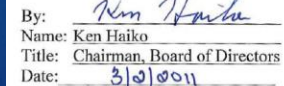 By: Ken Haiko
Name: Ken Haiko
Title: Chairman, Board of Directors
Date: 3/2/2011